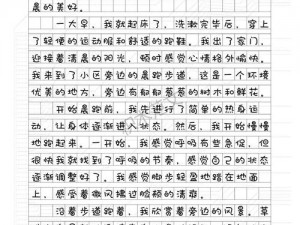 晨的美好。
一大早，我就起床了，洗漱完毕后，穿上
了轻便的运动服和舒适的跑鞋。我出了家门，
迎接着清晨的阳光，顿时感觉心情格外愉快。
我来到了小区旁边的晨跑步道，这是一个环境
优美的地方，旁边有郁郁葱葱的树木和鲜花。
开始晨跑前，我先进行了简单的热身运
动，让身体逐渐进入状态。然后，我开始慢慢
地跑起来。一开始，我感觉呼吸有些急促，但
很快我就找到了呼吸的节奏，感觉自己的状态
逐渐调整好了。我的脚步轻盈地踏在地面
上，感受着微风拂过脸颊的清爽。
沿着步道跑着，我欣赏着旁边的风景。草